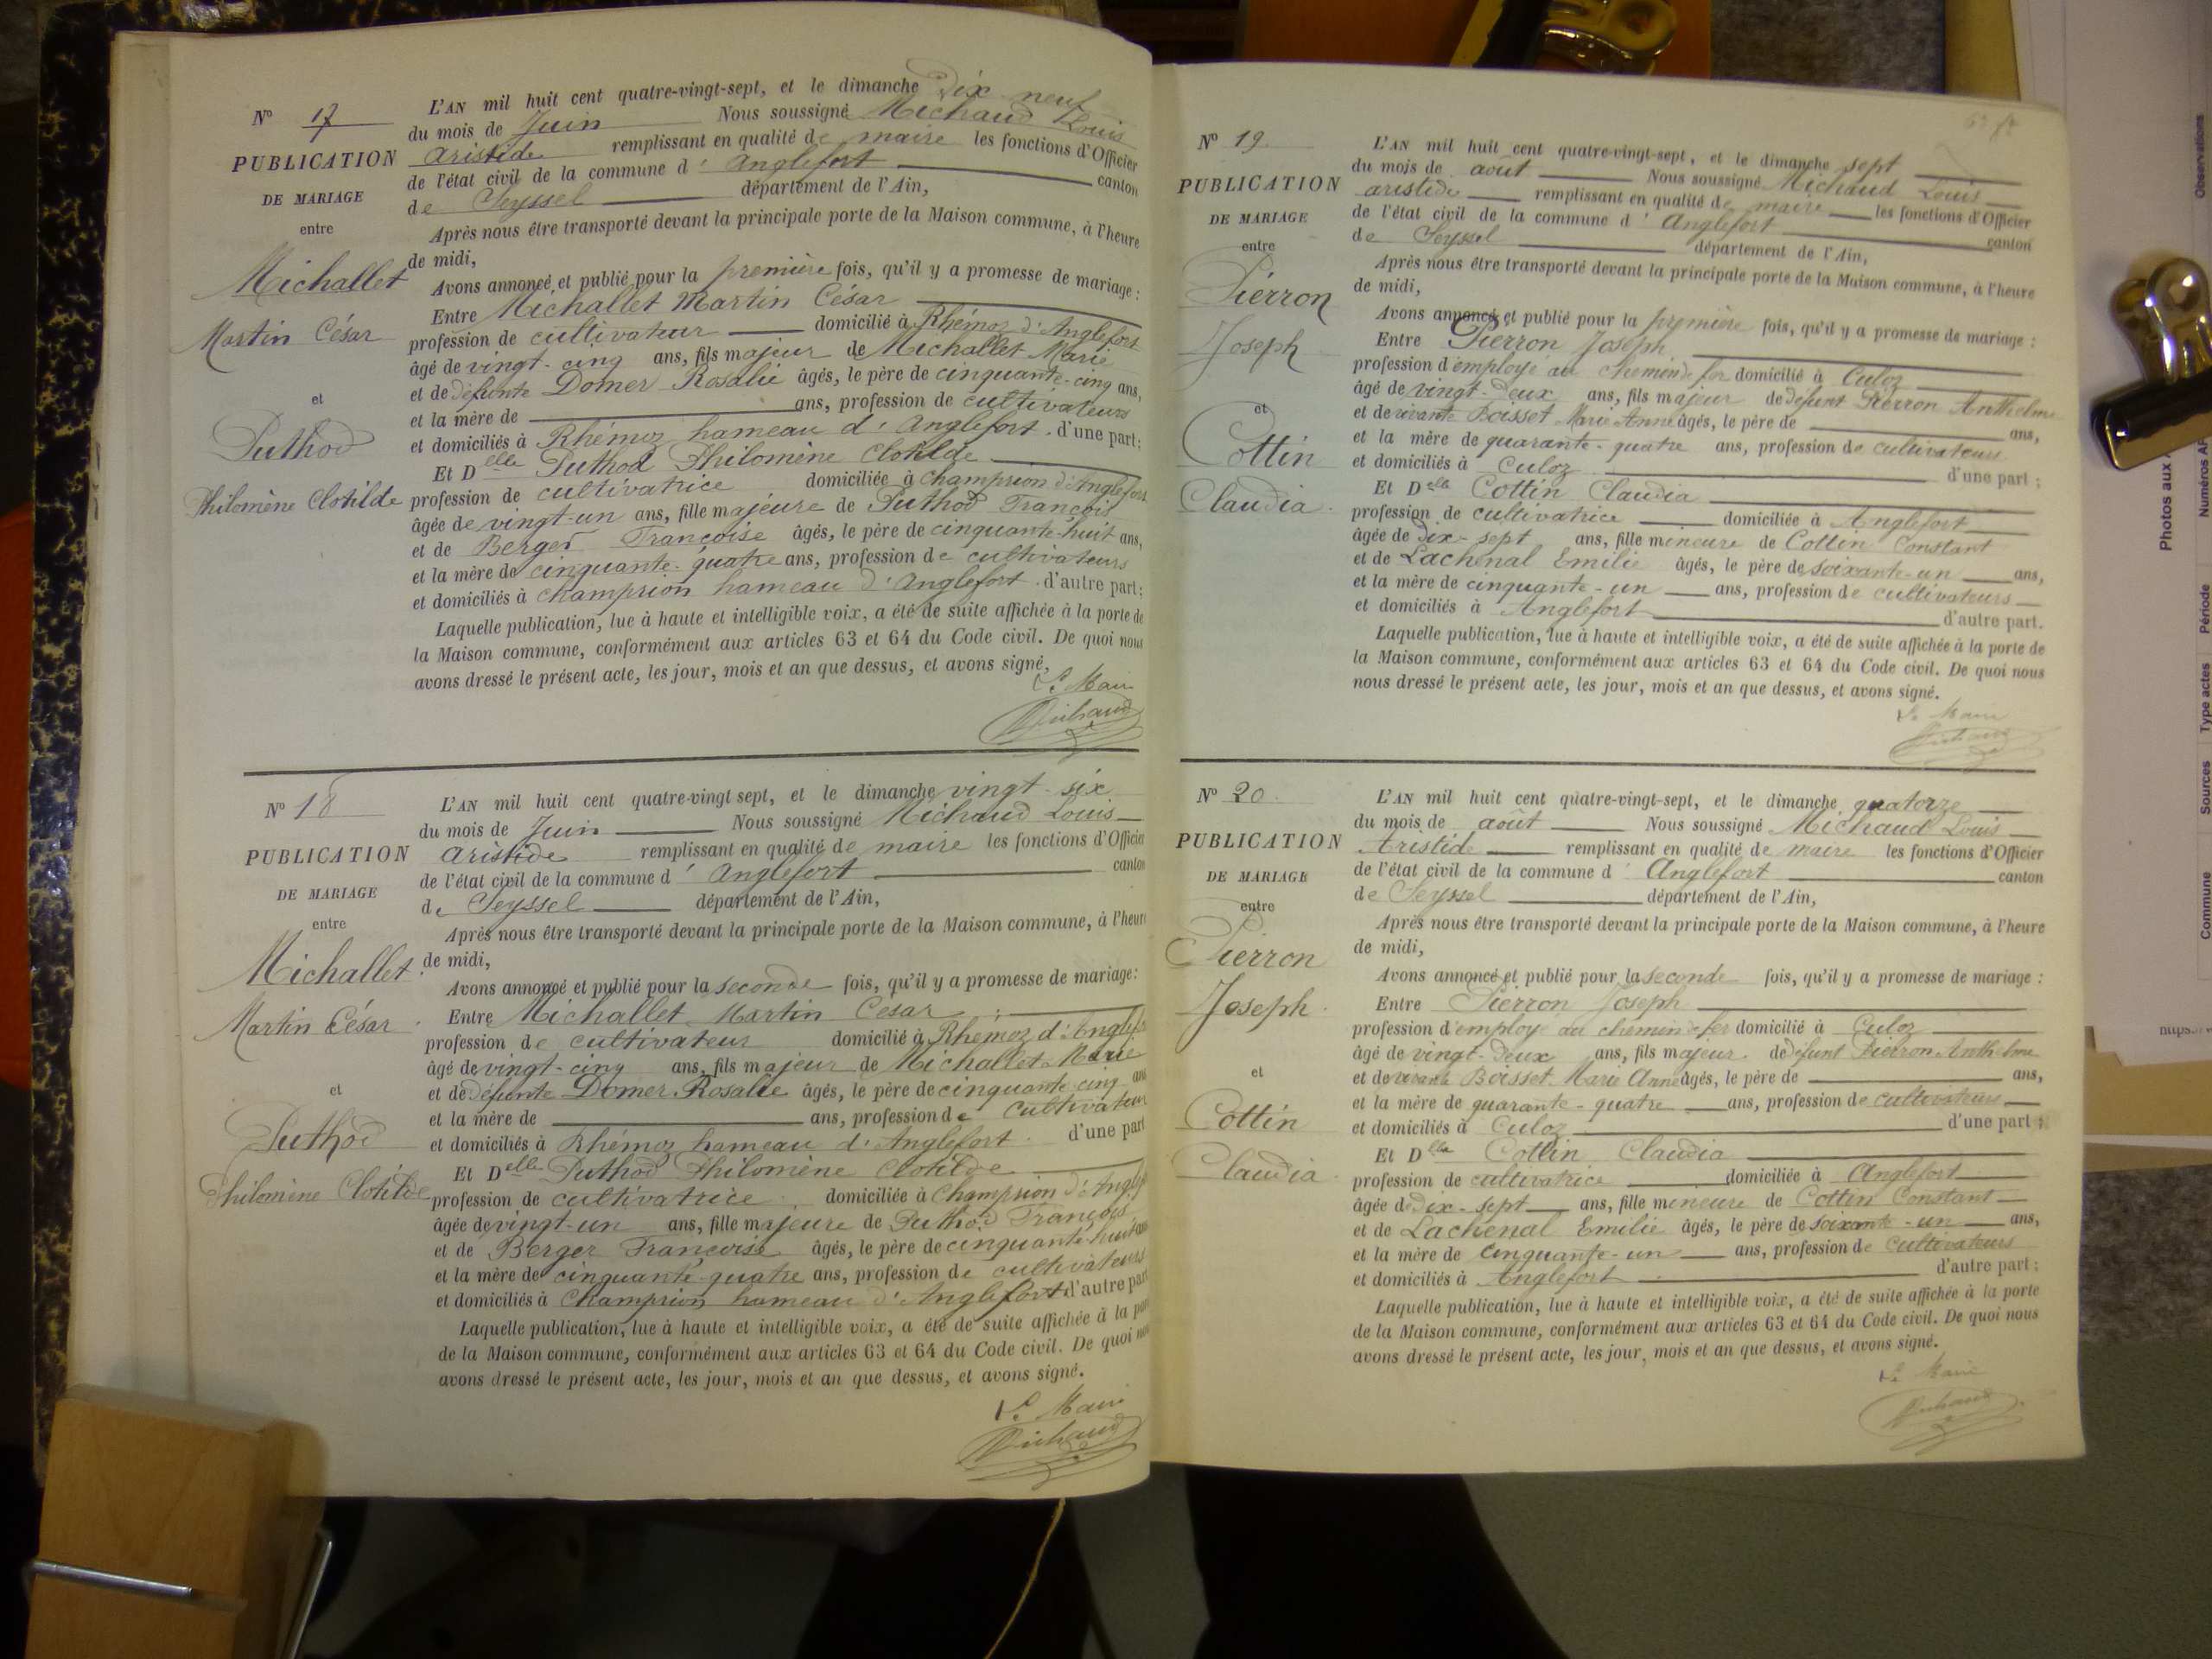 N° 17
PUBLICATION
DE MARIAGE
entre
Michallet
Martin César
et
Puthod
Philomène Clotilde
L'AN mil huit cent quatre-vingt-sept, et le dimanche Dix neuf
du mois de Juin Nous soussigné Michaud Louis
aristide remplissant en qualité de maire les fonctions d'Officier
de l'état civil de la commune d' Anglefort canton
de Seyssel département de l'Ain,
Après nous être transporté devant la principale porte de la Maison commune, à l'heure
de midi,
Avons annoncé et publié pour la première fois, qu'il y a promesse de mariage :
Entre Michallet Martin César
profession de cultivateur domicilié à Rhémoz d'Anglefort
âgé de vingt-cinq ans, fils majeur de Michallet Marie
et de défunte Domer Rosalie âgés, le père de cinquante-cinq ans,
et la mère de ans, profession de cultivateurs
et domiciliés à Rhémoz hameau d'Anglefort. d'une part;
Et Delle Puthod Philomène Clotilde
profession de cultivatrice domiciliée à Champrion d'Anglefort
âgée de vingt-un ans, fille majeure de Puthod François
et de Berger Françoise âgés, le père de cinquante-huit ans,
et la mère de cinquante-quatre ans, profession de cultivateurs
et domiciliés à Champrion hameau d'Anglefort. d'autre part;
Laquelle publication, lue à haute et intelligible voix, a été de suite affichée à la porte de
la Maison commune, conformément aux articles 63 et 64 du Code civil. De quoi nous
avons dressé le présent acte, les jour, mois et an que dessus, et avons signé,
Le Maire
Michaud
N° 18
PUBLICATION
DE MARIAGE
entre
Michallet
Martin César
et
Puthod
Philomène Clotilde
L'AN mil huit cent quatre-vingt sept, et le dimanche vingt-six
du mois de Juin Nous soussigné Michaud Louis
aristide remplissant en qualité de maire les fonctions d'Officier
de l'état civil de la commune d' Anglefort canton
de Seyssel département de l'Ain,
Après nous être transporté devant la principale porte de la Maison commune, à l'heure
de midi,
Avons annoncé et publié pour la seconde fois, qu'il y a promesse de mariage:
Entre Michallet Martin César
profession de cultivateur domicilié à Rhémoz d'Anglefort
âgé de vingt-cinq ans, fils majeur de Michallet Marie
et de défunte Domer Rosalie âgés, le père de cinquante-cinq ans
et la mère de ans, profession de cultivateurs
et domiciliés à Rhémoz hameau d'Anglefort. d'une part
Et Delle Puthod Philomène Clotilde
profession de cultivatrice domiciliée à Champrion d'Anglef
âgée de vingt-un ans, fille majeure de Puthod François
et de Berger Françoise âgés, le père de cinquante-huit ans
et la mère de cinquante-quatre ans, profession de cultivateurs
et domiciliés à Champrion hameau d'Anglefort d'autre part
Laquelle publication, lue à haute et intelligible voix, a été de suite affichée à la porte
de la Maison commune, conformément aux articles 63 et 64 du Code civil. De quoi nous
avons dressé le présent acte, les jour, mois et an que dessus, et avons signé.
Le Maire
Michaud
N° 19.
PUBLICATION
DE MARIAGE
entre
Pierron
Joseph
et
Cottin
Claudia.
L'AN mil huit cent quatre-vingt-sept, et le dimanche sept
du mois de août Nous soussigné Michaud Louis
aristide remplissant en qualité de maire les fonctions d'Officier
de l'état civil de la commune d' Anglefort canton
de Seyssel département de l'Ain,
Après nous être transporté devant la principale porte de la Maison commune, à l'heure
de midi,
Avons annoncé et publié pour la première fois, qu'il y a promesse de mariage :
Entre Pierron Joseph
profession d'employé au chemin de fer domicilié à Culoz
âgé de vingt-deux ans, fils majeur de défunt Pierron Anthelme
et de vivante Boisset Marie Anne âgés, le père de ans,
et la mère de quarante-quatre ans, profession de cultivateurs
et domiciliés à Culoz d'une part ;
Et Delle Cottin Claudia
profession de cultivatrice domiciliée à Anglefort
âgée de dix-sept ans, fille mineure de Cottin Constant
et de Lachenal Emilie âgés, le père de soixante-un ans,
et la mère de cinquante-un ans, profession de cultivateurs
et domiciliés à Anglefort d'autre part.
Laquelle publication, lue à haute et intelligible voix, a été de suite affichée à la porte de
la Maison commune, conformément aux articles 63 et 64 du Code civil. De quoi nous
nous dressé le présent acte, les jour, mois et an que dessus, et avons signé.
Le Maire
Michaud
N° 20.
PUBLICATION
DE MARIAGE
entre
Pierron
Joseph.
et
Cottin
Claudia.
L'AN mil huit cent quatre-vingt-sept, et le dimanche quatorze
du mois de août Nous soussigné Michaud Louis
Aristide remplissant en qualité de maire les fonctions d'Officier
de l'état civil de la commune d' Anglefort canton
de Seyssel département de l'Ain,
Après nous être transporté devant la principale porte de la Maison commune, à l'heure
de midi,
Avons annoncé et publié pour la seconde fois, qu'il y a promesse de mariage :
Entre Pierron Joseph
profession d'employé au chemin de fer domicilié à Culoz
âgé de vingt-deux ans, fils majeur. de défunt Pierron Anthelme
et de vivante Boisset Marie Anne âgés, le père de ans,
et la mère de quarante-quatre ans, profession de cultivateurs
et domiciliés à Culoz d'une part ;
Et Delle Cottin Claudia
profession de cultivatrice domiciliée à Anglefort
âgée de dix-sept ans, fille mineure de Cottin Constant
et de Lachenal Emilie âgés, le père de soixante-un ans,
et la mère de cinquante-un ans, profession de cultivateurs
et domiciliés à Anglefort d'autre part ;
Laquelle publication, lue à haute et intelligible voix, a été de suite affichée à la porte
de la Maison commune, conformément aux articles 63 et 64 du Code civil. De quoi nous
avons dressé le présent acte, les jour, mois et an que dessus, et avons signé.
Le Maire
Michaud
Commune
Sources
Type actes
Période
Observations
Photos aux